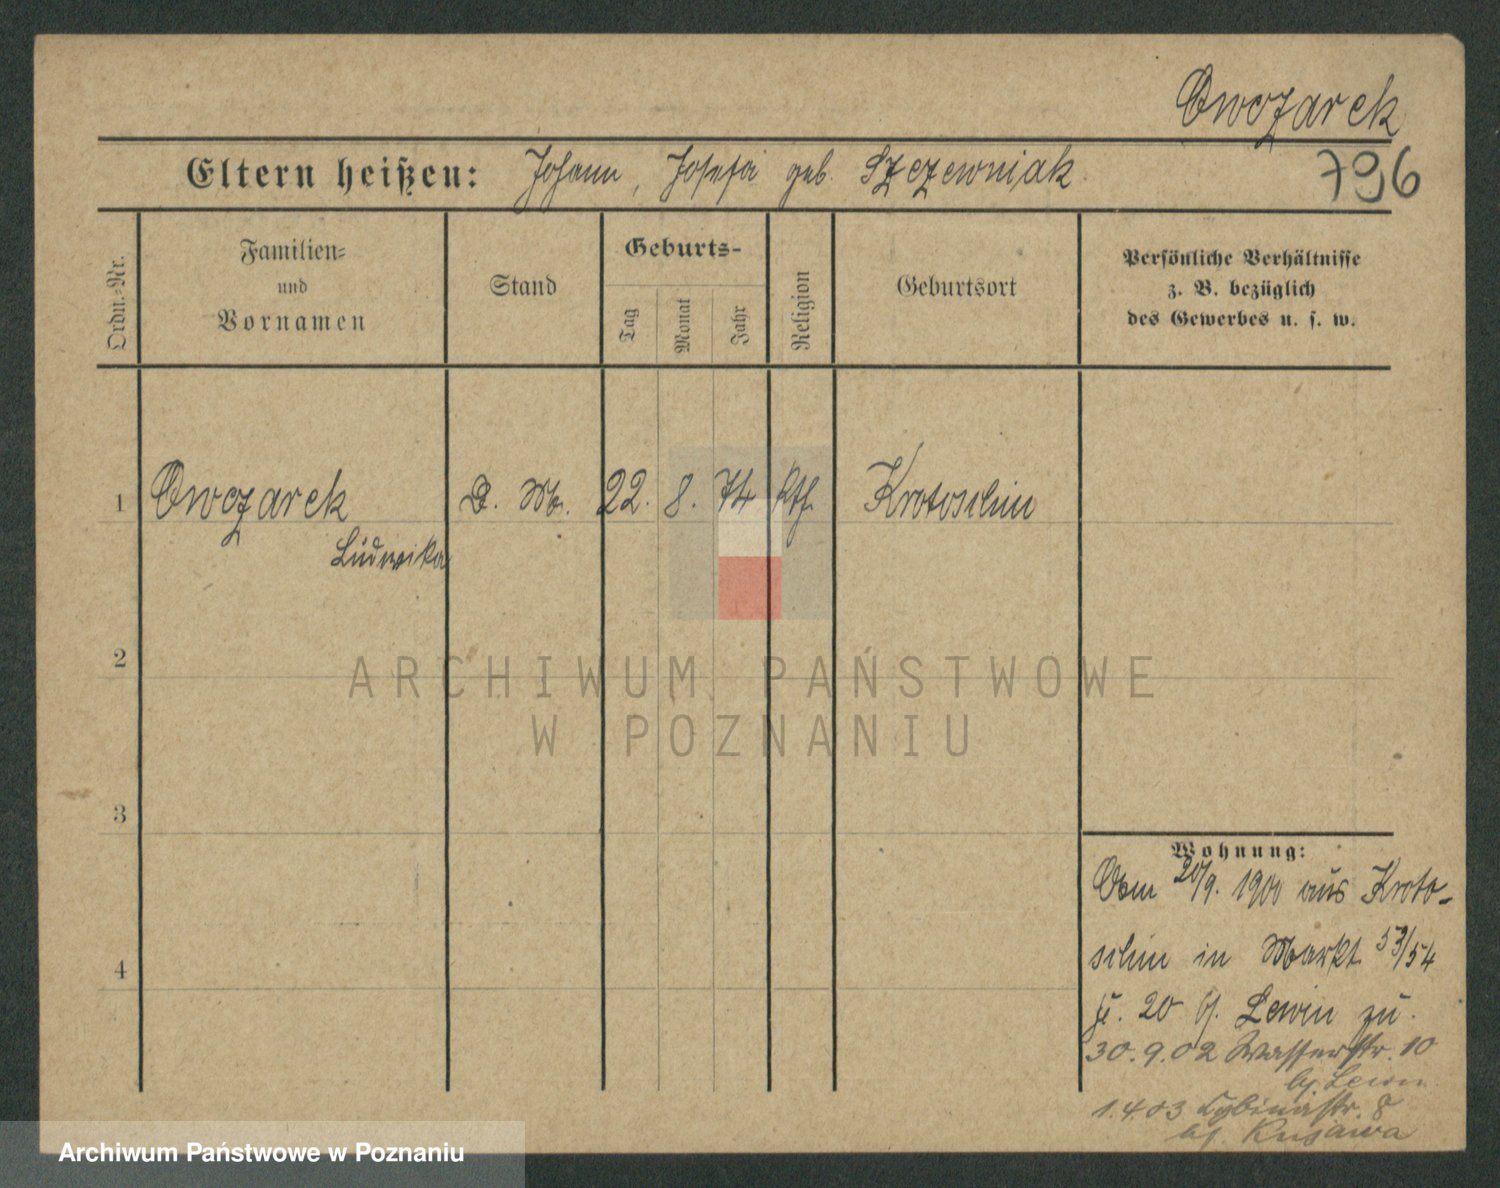 Owczarek
Eltern heißen: Johann, Josefa geb. Szczewniak
796
Ordn.-Nr.
Familien-
und
Vornamen
Stand
Geburts-
Tag
Monat
Jahr
Religion
Geburtsort
Persönliche Verhältnisse
z. B. bezüglich
des Gewerbes u. s. w.
1 Owczarek D. M. 22. 8. 74 kth. Krotoschin
Ludwika
2
ARCHIWUM PAŃSTWOWE
W POZNANIU
3
Wohnung:
Vom 20/9. 1900 aus Kroto-
schin in Markt 53/54
20 bj. Lewin zu
30.9.02 Wasserstr. 10
bj. Lewin
1.4.03 Cybinastr. 8
bj. Kujawa
4
Archiwum Państwowe w Poznaniu